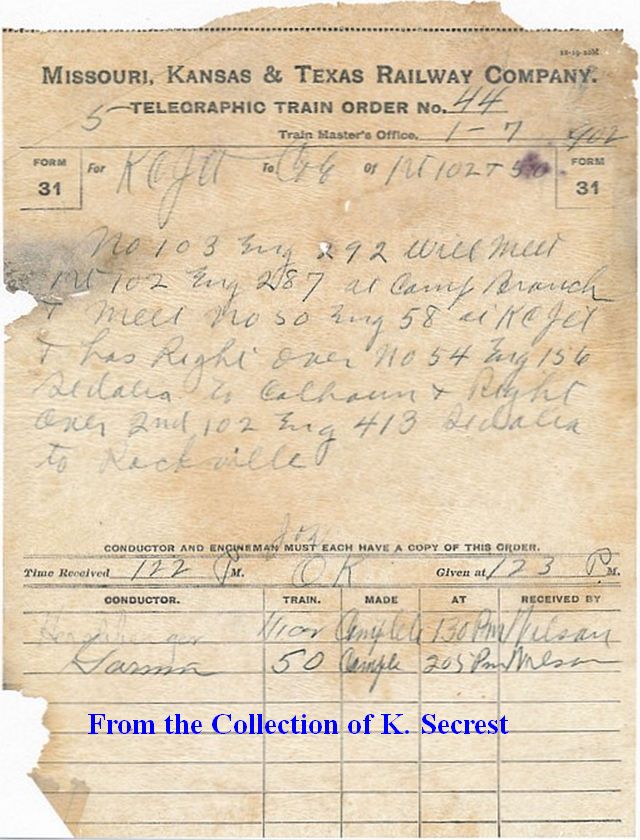 22-19-20M
MISSOURI, KANSAS & TEXAS RAILWAY COMPANY.
5 TELEGRAPHIC TRAIN ORDER No. 44
Train Master's Office, 1-7 902
FORM 31 For K C Jct To C&E Of 1st 102 + 50 FORM 31
No 103 Eng 292 will meet
1st 102 Eng 287 at Camp Branch
+ meet No 50 Eng 58 at K C Jct
+ has Right over No 54 Eng 156
Sedalia to Calhoun + Right
over 2nd 102 Eng 413 Sedalia
to Rockville
CONDUCTOR AND ENGINEMAN MUST EACH HAVE A COPY OF THIS ORDER.
Time Received 122 P M. OK Given at 123 P. M.
CONDUCTOR. TRAIN. MADE AT RECEIVED BY
Complete 130 Pm Wilson
50 Comple 205 Pm Wilson
From the Collection of K. Secrest